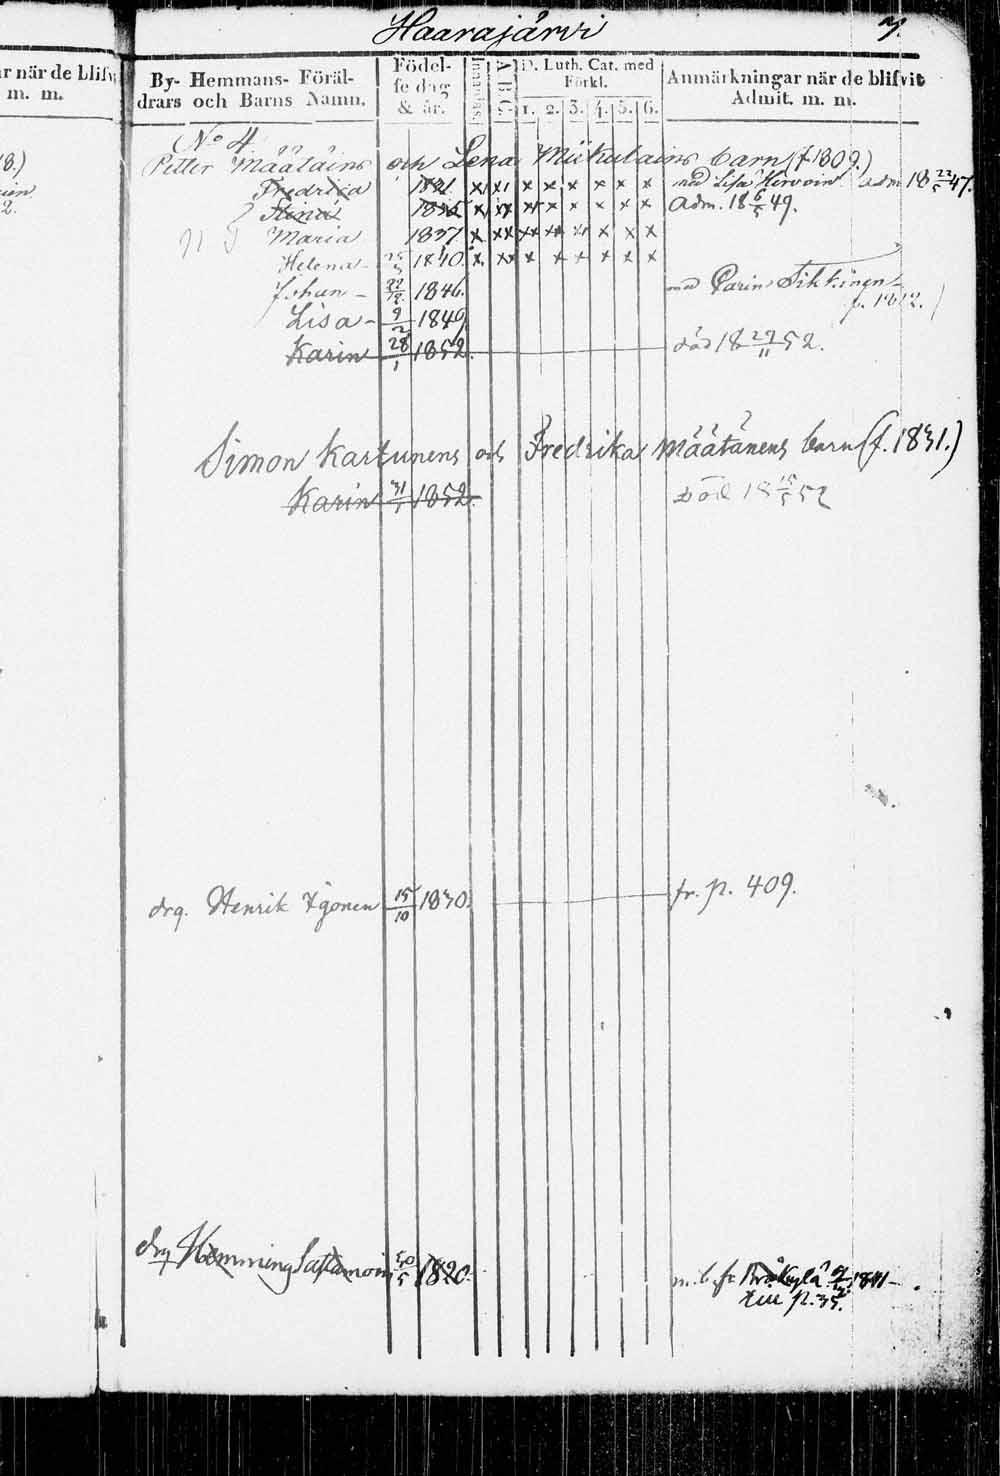 Haarajärvi 7.
r när de blifvi
m. m.
By- Hemmans- Föräl-
drars och Barns Namn.
Födel-
se dag
& år.
Innanläsn.
A B C
D. Luth. Cat. med
Förkl.
1. 2. 3. 4. 5. 6.
Anmärkningar när de blifvit
Admit. m. m.
8.)
2.
No 4
Petter Määtäins och Lena Mikulains barn (f. 1809.)
Fredrica 1831 x x x x x x x x med Lisa Hirvoin adm 18 22/5 47.
Stina 1835 x xx x x x x x x Adm. 18 6/5 49.
Maria 1837 x xx xx xx x x x x
Helena 1840. x xx x x x x x x
Johan 22/12 1846. med Carin Tikkinen
f. 1812.)
Lisa 9/2 1849
Karin 28/1 1852 död 18 29/11 52.
Simon Kartunens och Fredrika Määtänens barn (f. 1831.)
Karin 31/1 1852. Död 18 15/5 52
drg. Henrik Igonen 15/10 1830. fr. p. 409.
drg Hemming 30/5 1820. m. b. fr 1841
till p. 35.